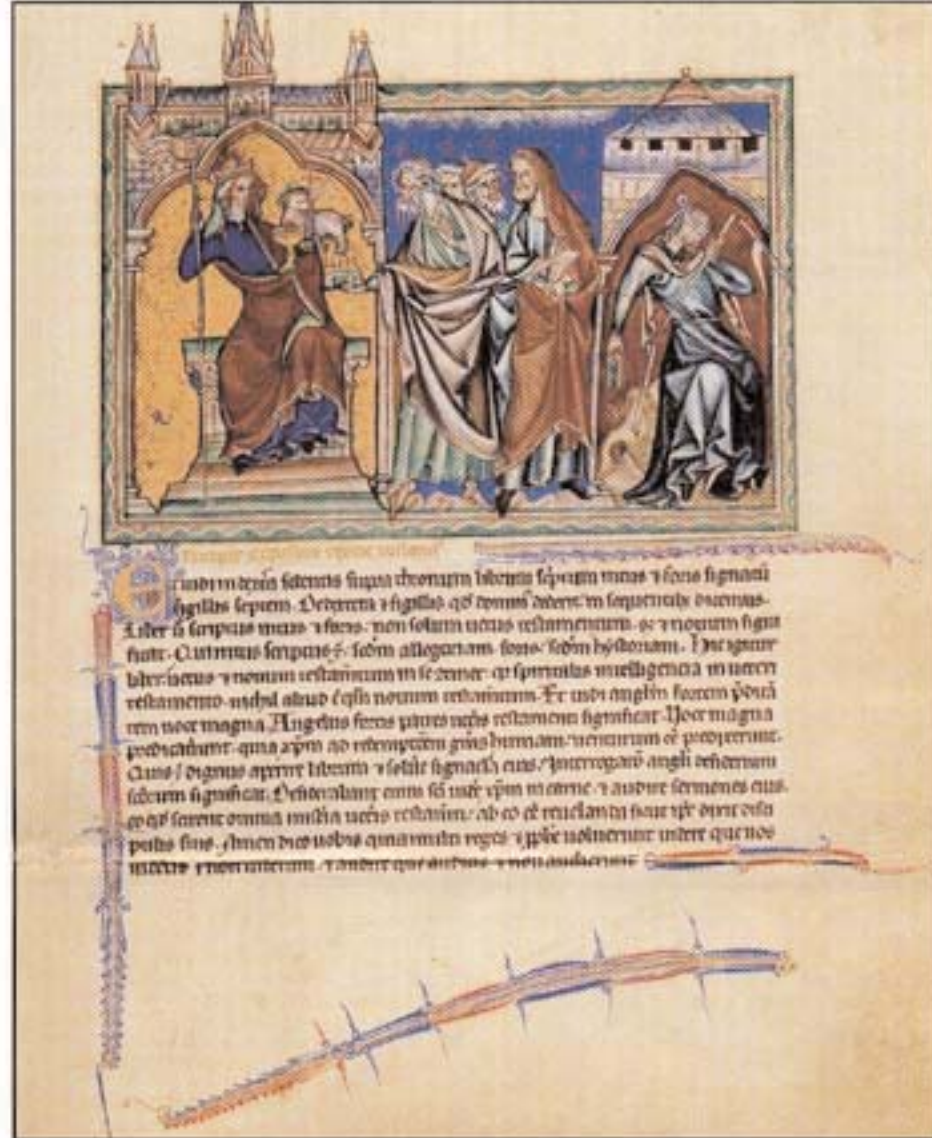 Et vidi in dextra sedentis supra thronum librum scriptum intus ⁊ foris signatū
sigillis septem. De dextera ⁊ sigillis qd domin' dederit in sequentib; dicemus.
Liber iste scriptus intus ⁊ foris non solum uetus testamentum. sꝫ ⁊ nouum signi
ficat. Qui intus scriptus ē. scdm allegoriam. foris. scdm hystoriam. Hic igitur
liber uetus ⁊ nouum testamentum in se continet. qꝛ spiritalis intelligencia in ueteri
testamento. nichil aliud ē qͣm nouum testamentum. Et uidi anglm fortem p̄dicā
tem uoce magna. Angelus fortis patres ueteris testamenti significat. Voce magna
predicauerunt. quia xp̄m ad redemptōem gn̄is humani. uenturum eē predixerunt.
Quis ē dignus aperire librum ⁊ soluere signacula eius. Interrogatio angli desiderium
scōrum significat. Desiderabant enim scī uidere xp̄m in carne. ⁊ audire sermones eius.
eo qd scirent omnia misteria ueteris testamenti. ab eo eē reuelanda sicut xp̄c dixit disci
pulis suis. Amen dico uobis quia multi reges ⁊ pphe uoluerunt uidere que uos
uidetis ⁊ non uiderunt. ⁊ audire que auditis ⁊ non audierunt